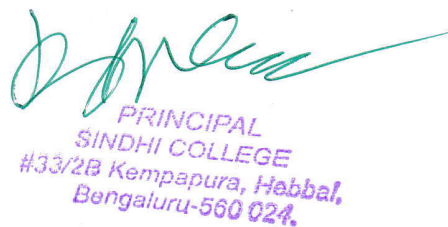 PRINCIPAL
SINDHI COLLEGE
#33/2B Kempapura, Hebbal,
Bengaluru-560 024.